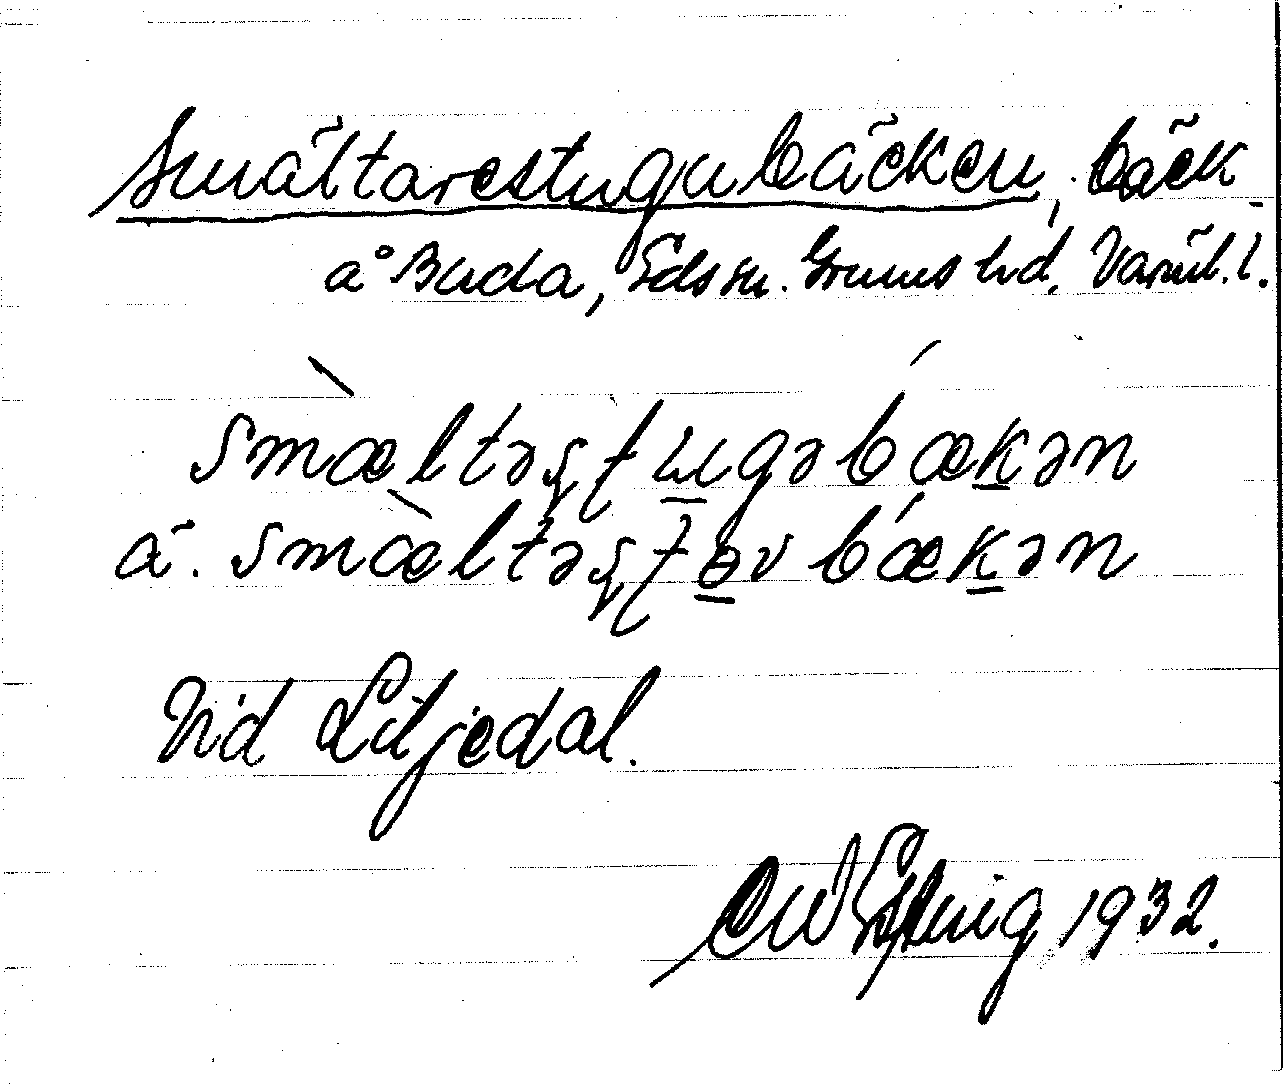 Smältarestugubäcken, bäck
å Buda, Eds sn. Grums hd, Värml. l.
smæltəʂʈɯgəbækən
ä. smæltəʂʈɵvbækən
Vid Liljedal.
1932.